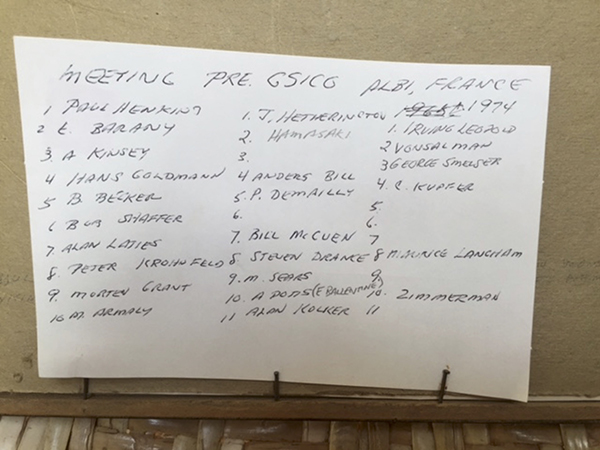 MEETING PRE. GSICO ALBI, FRANCE
1974
1 PAUL HENKIND
2 E. BARANY
3. A KINSEY
4 HANS GOLDMANN
5 B. BECKER
6 BOB SHAFFER
7. ALAN LATIES
8. PETER KRONFELD
9. MORTEN GRANT
10. M. ARMALY
1. J. HETHERINGTON
2. HAMASAKI
3.
4 ANDERS BILL
5. P. DEMAILLY
6.
7. BILL MCCUEN
8 STEVEN DRANCE
9. M. SEARS
10. A POTTS (E BALLENTINE)
11 ALAN KOLKER
1. IRVING LEOPOLD
2 VON SALMAN
3 GEORGE SMELSER
4. C. KUPFER
5.
6.
7
8 MAURICE LANGHAM
9
10. ZIMMERMAN
11